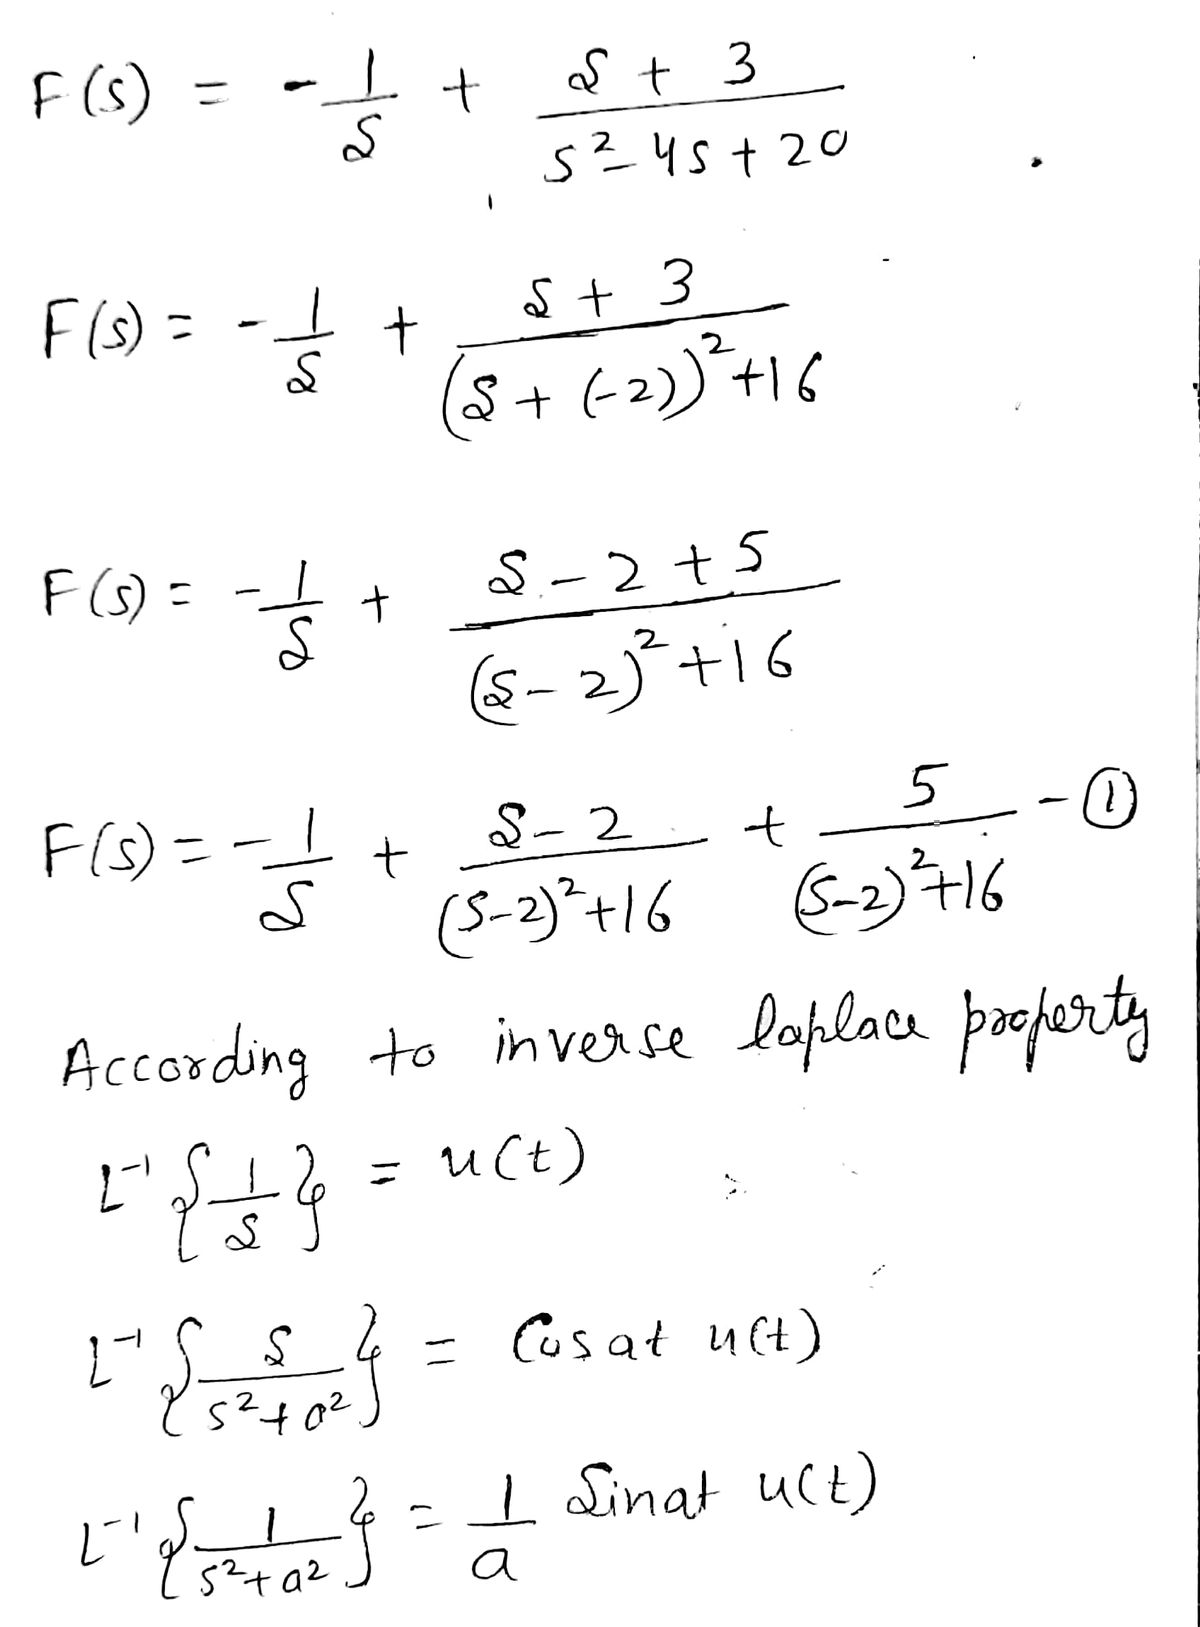 F(s) = -1/s + (s + 3)/(s² - 4s + 20)
F(s) = -1/s + (s + 3)/((s + (-2))² + 16)
F(s) = -1/s + (s - 2 + 5)/((s - 2)² + 16)
F(s) = -1/s + (s - 2)/((s-2)² + 16) + 5/((s-2)² + 16) - ①
According to inverse laplace property
L⁻¹{1/s} = u(t)
L⁻¹{s/(s² + a²)} = Cos at u(t)
L⁻¹{1/(s² + a²)} = 1/a Sinat u(t)